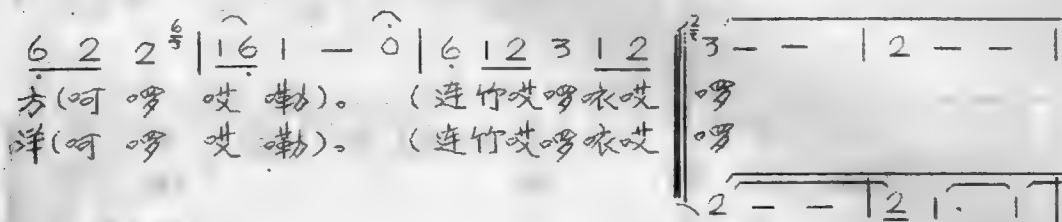 6̣ 2 2 | 1 6̣ 1 — 0 | 6̣ 1 2 3 1 2 3 — — | 2 — — |
方(呵 啰 哎 嘞)。 (连竹哎啰衣哎 啰
洋(呵 啰 哎 嘞)。 (连竹哎啰衣哎 啰
2 — — | 2 1 · 1